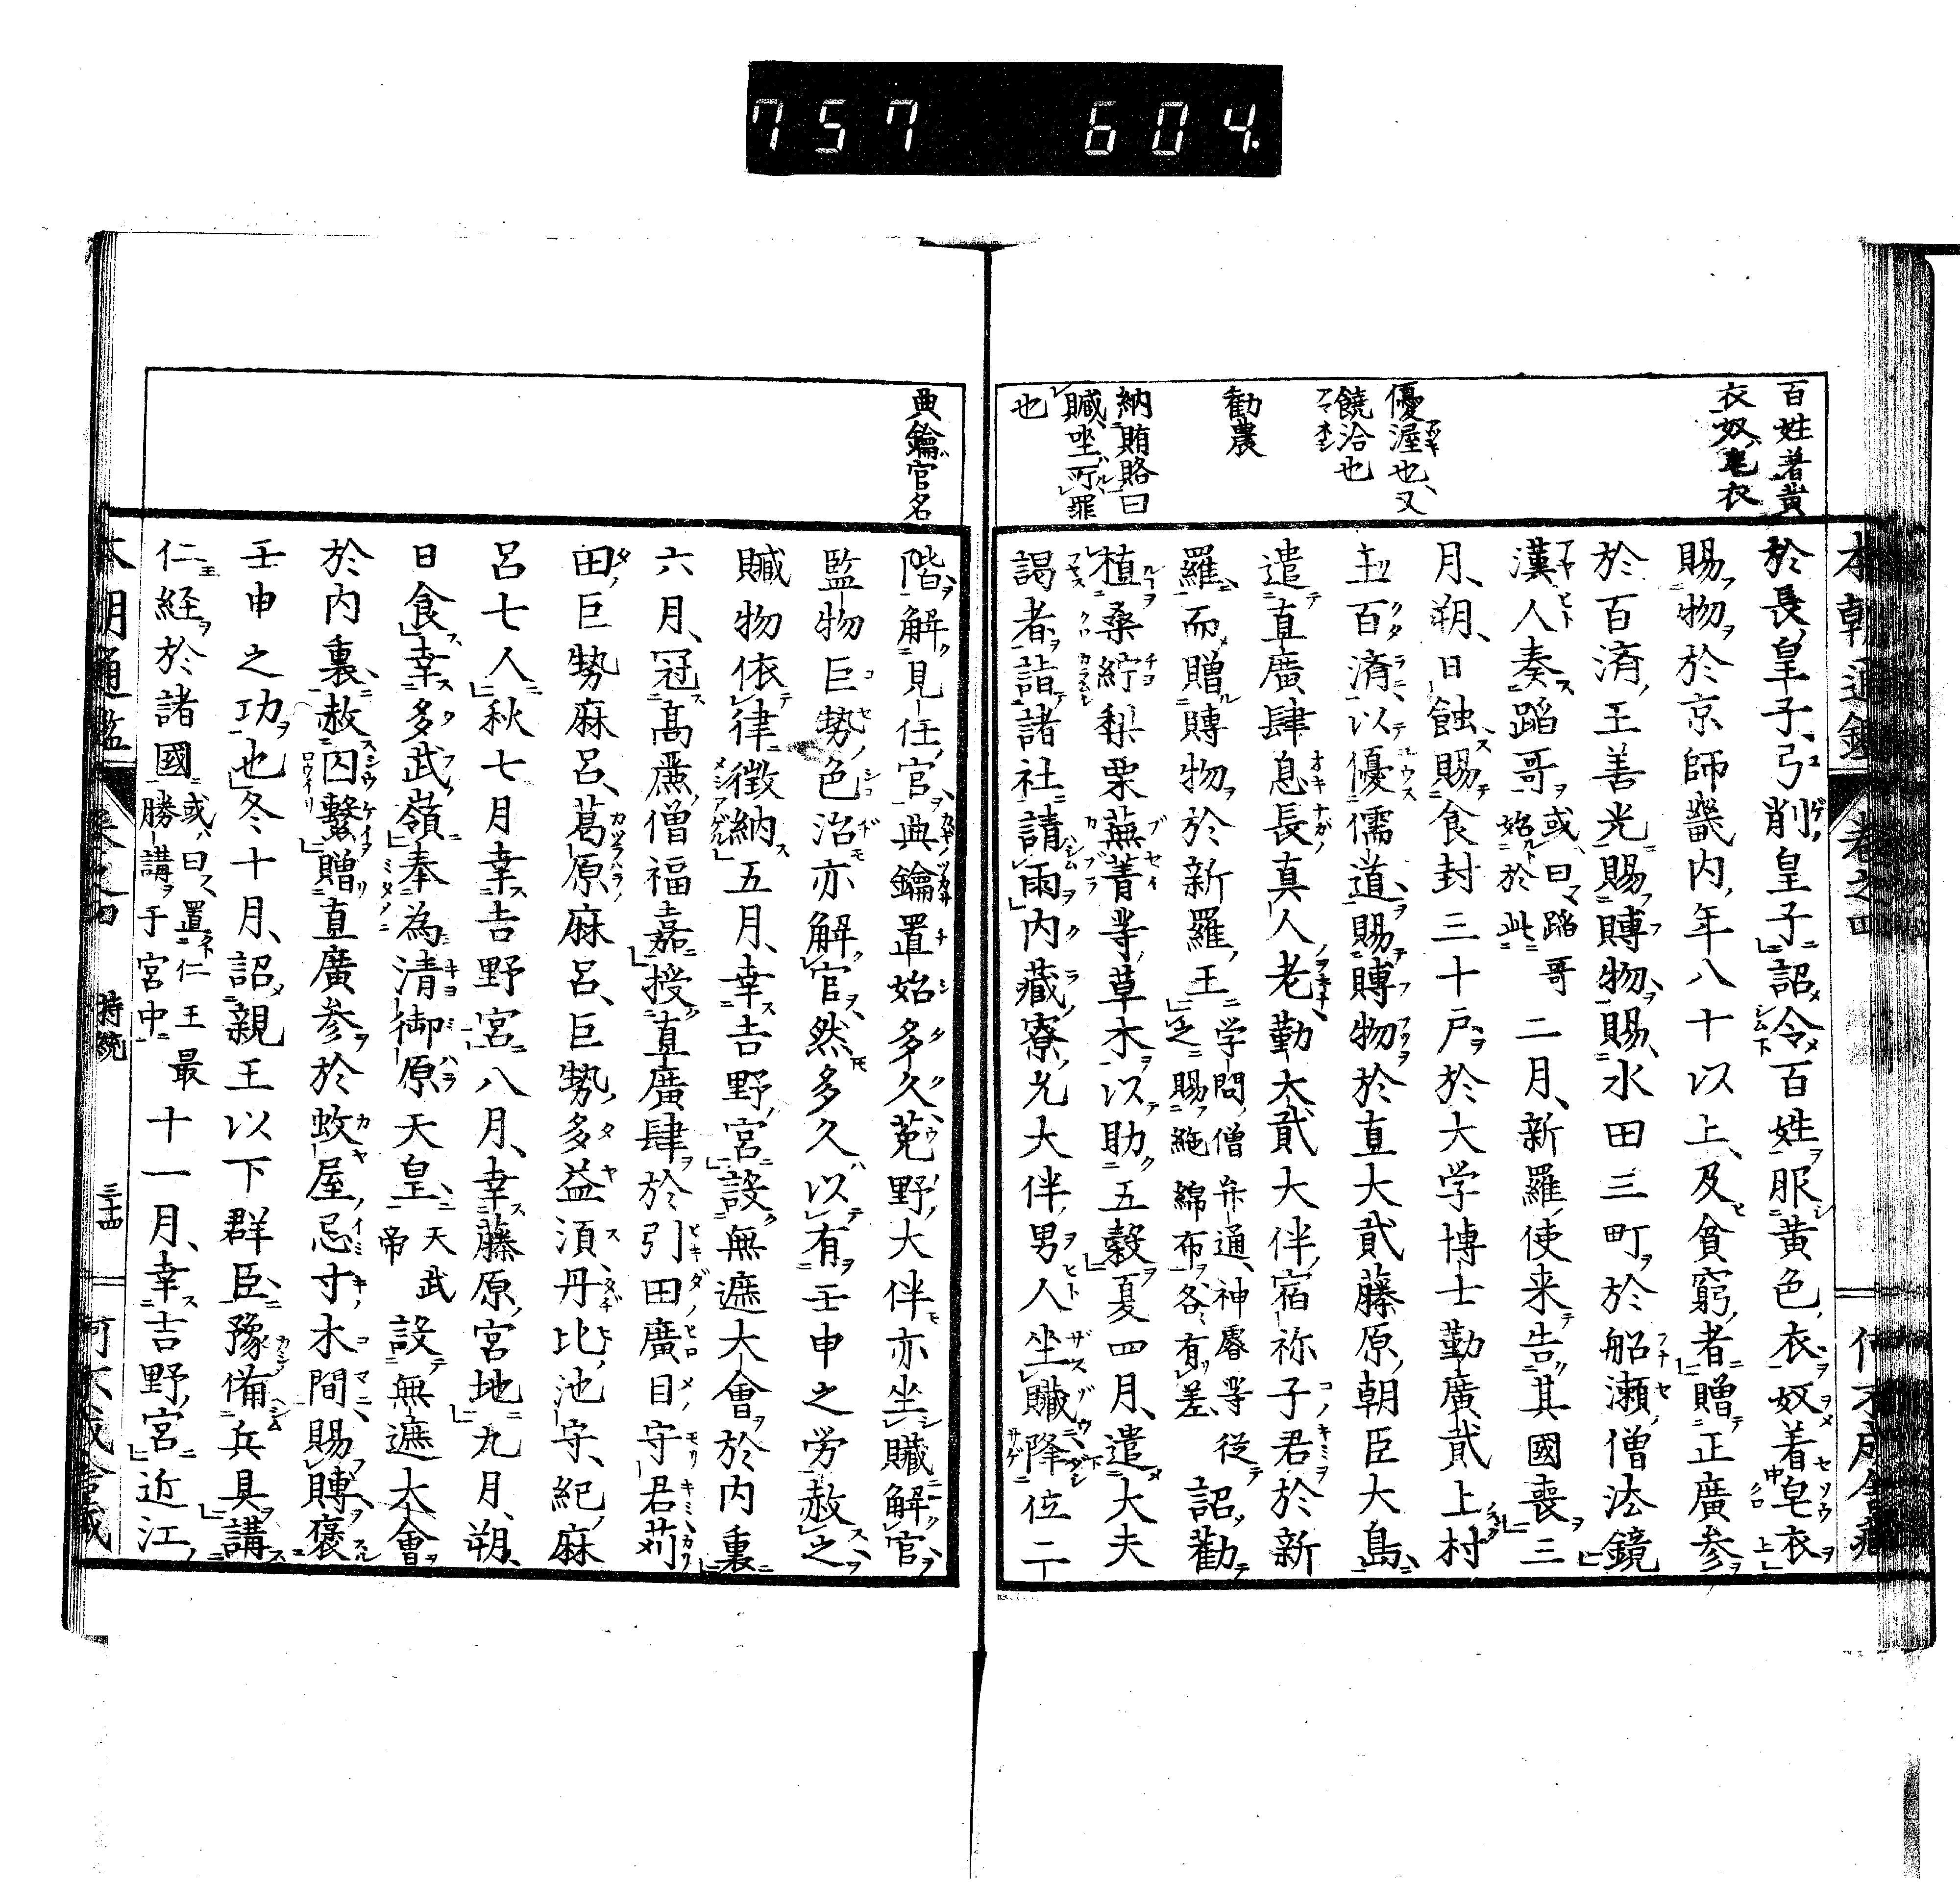 757 604.
百姓著黄
衣奴皂衣
優渥也、又
饒洽也
勧農
納賄賂曰
贓、坐所罪
也
本朝通鑑 巻之四
於長皇子、弓削皇子詔令百姓服黄色衣奴着皂衣
賜物於京師畿内年八十以上、及貧窮者贈正廣参
於百済王善光賜賻物賜水田三町於船瀬僧法鏡
漢人奏蹈哥或曰蹈哥始於此二月、新羅使来告其國喪三
月、朔、日蝕賜食封三十戸於大学博士勤廣貮上村
主百済以優儒道、賜賻物於直大貮藤原朝臣大島
遣直廣肆息長真人老勤大貮大伴宿祢子君於新
羅而贈賻物於新羅王学問僧弁通、神睿等従之賜絁綿布各有差詔勧
植桑紵梨栗蕪菁等草木以助五穀夏四月、遣大夫
謁者詣諸社請雨内蔵寮允大伴男人坐贓降位二
典鑰官名
階解見任官典鑰置始多久菟野大伴亦坐贓解官
監物巨勢邑治亦解官然多久以有壬申之労赦之
贓物依律徴納五月、幸吉野宮設無遮大會於内裏
六月、冠高麗僧福嘉授直廣肆於引田廣目守君苅
田巨勢麻呂、葛原麻呂、巨勢多益須、丹比池守、紀麻
呂七人秋七月幸吉野宮八月、幸藤原宮地九月、朔、
日食幸多武嶺奉為清御原天皇天武帝設無遮大會
於内裏赦囚繋贈直廣参於蚊屋忌寸木間賜賻褒
壬申之功也冬十月、詔親王以下群臣豫備兵具講
仁経於諸國或曰、置仁王最勝講于宮中十一月、幸吉野宮近江
本朝通鑑 持統 三十四